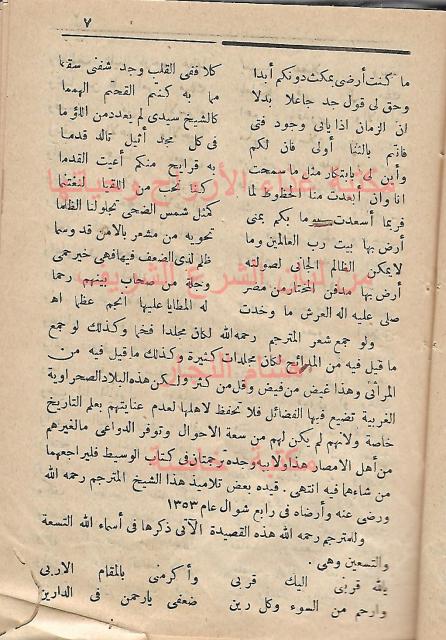 ٧
ما كنت أرضى بمكث دونكم أبدا كلا ففى القلب وجد شفنى سقما
وحق لى قول جد جاعلا بدلا مما به كنتم القحتم الهمما
ان الزمان اذا يانى وجود فتى كالشيخ سيدى لم يعدد من اللؤما
فانتم بالثنا أولى فان لكم فى كل مجد أثيل تالد قدما
وأين لى بابتكار مثل ما سمحت به قرايح منكم أعيت القدما
انا وان أبعدت منا الحظوظ لما كنا نحب من اللقيا لنغتنما
فربما أسعدت يوما بكم بمنى كمثل شمس الضحى تجلو لنا الظلما
أرض بها بيت رب العالمين وما تحويه من مشعر بالامن قد وسما
لا يمكن الظالم الجانى لصولته ظلم لذى الضعف فيها فهى خير حمى
أرض بها مدفن المختار من مضر وجلة من صحاب بينهم رحما
صلى عليه اله العرش ما وخدت له المطايا عليها انجم عظما اه
ولو جمع شعر المترجم رحمه الله لكان مجلدا فخما وكذلك لو جمع
ما قيل فيه من المدائح لكان مجلدات كثيرة وكذلك ما قيل فيه من
المراثى وهذا غيض من فيض وقل من كثر ولكن هذه البلاد الصحراوية
الغربية تضيع فيها الفضائل فلا تحفظ لاهلها لعدم عنايتهم بعلم التاريخ
خاصة ولانهم لم يكن لهم من سعة الاحوال وتوفر الدواعى مالغيرهم
من أهل الامصار هذا ولابيه وجده ترجمتان فى كتاب الوسيط فليراجعهما
من شاءها فيه انتهى . قيده بعض تلاميذ هذا الشيخ المترجم رحمه الله
ورضى عنه وأرضاه فى رابع شوال عام ١٣٥٣
وللمترجم رحمه الله هذه القصيدة الآتى ذكرها فى أسماء الله التسعة
والتسعين وهى .
يالله قربى اليك قربى وأكرمنى بالمقام الاربى
وارحم من السوء وكل رين ضعفى يارحمن فى الدارين